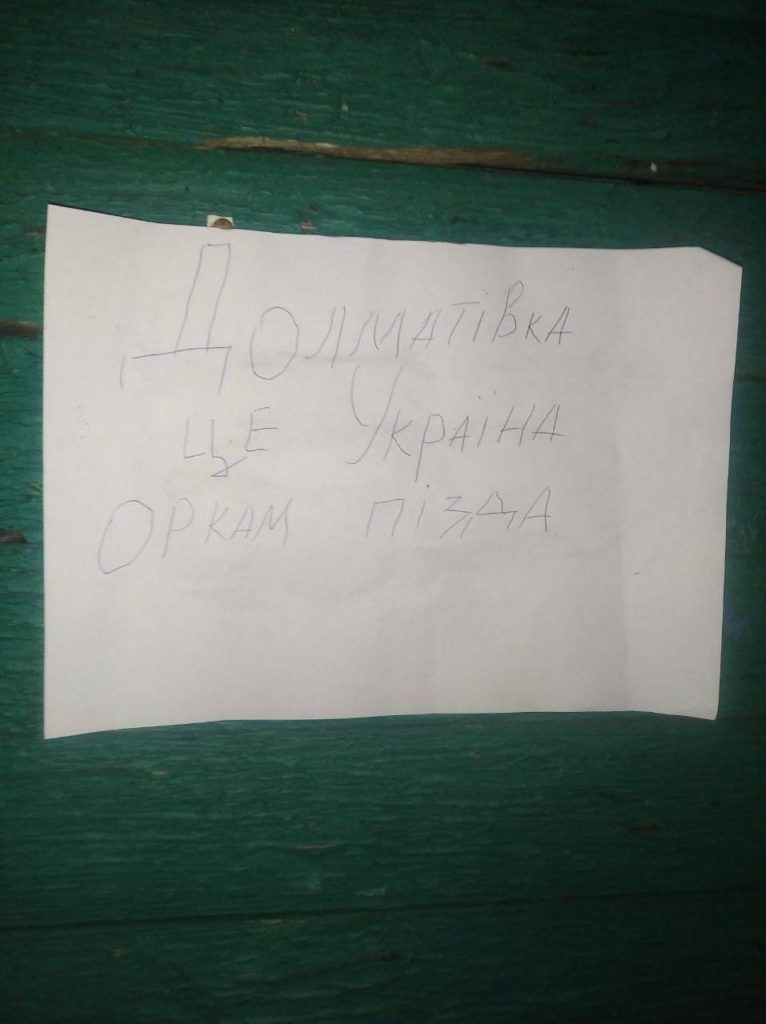 Долматівка
це Україна
Оркам пізда